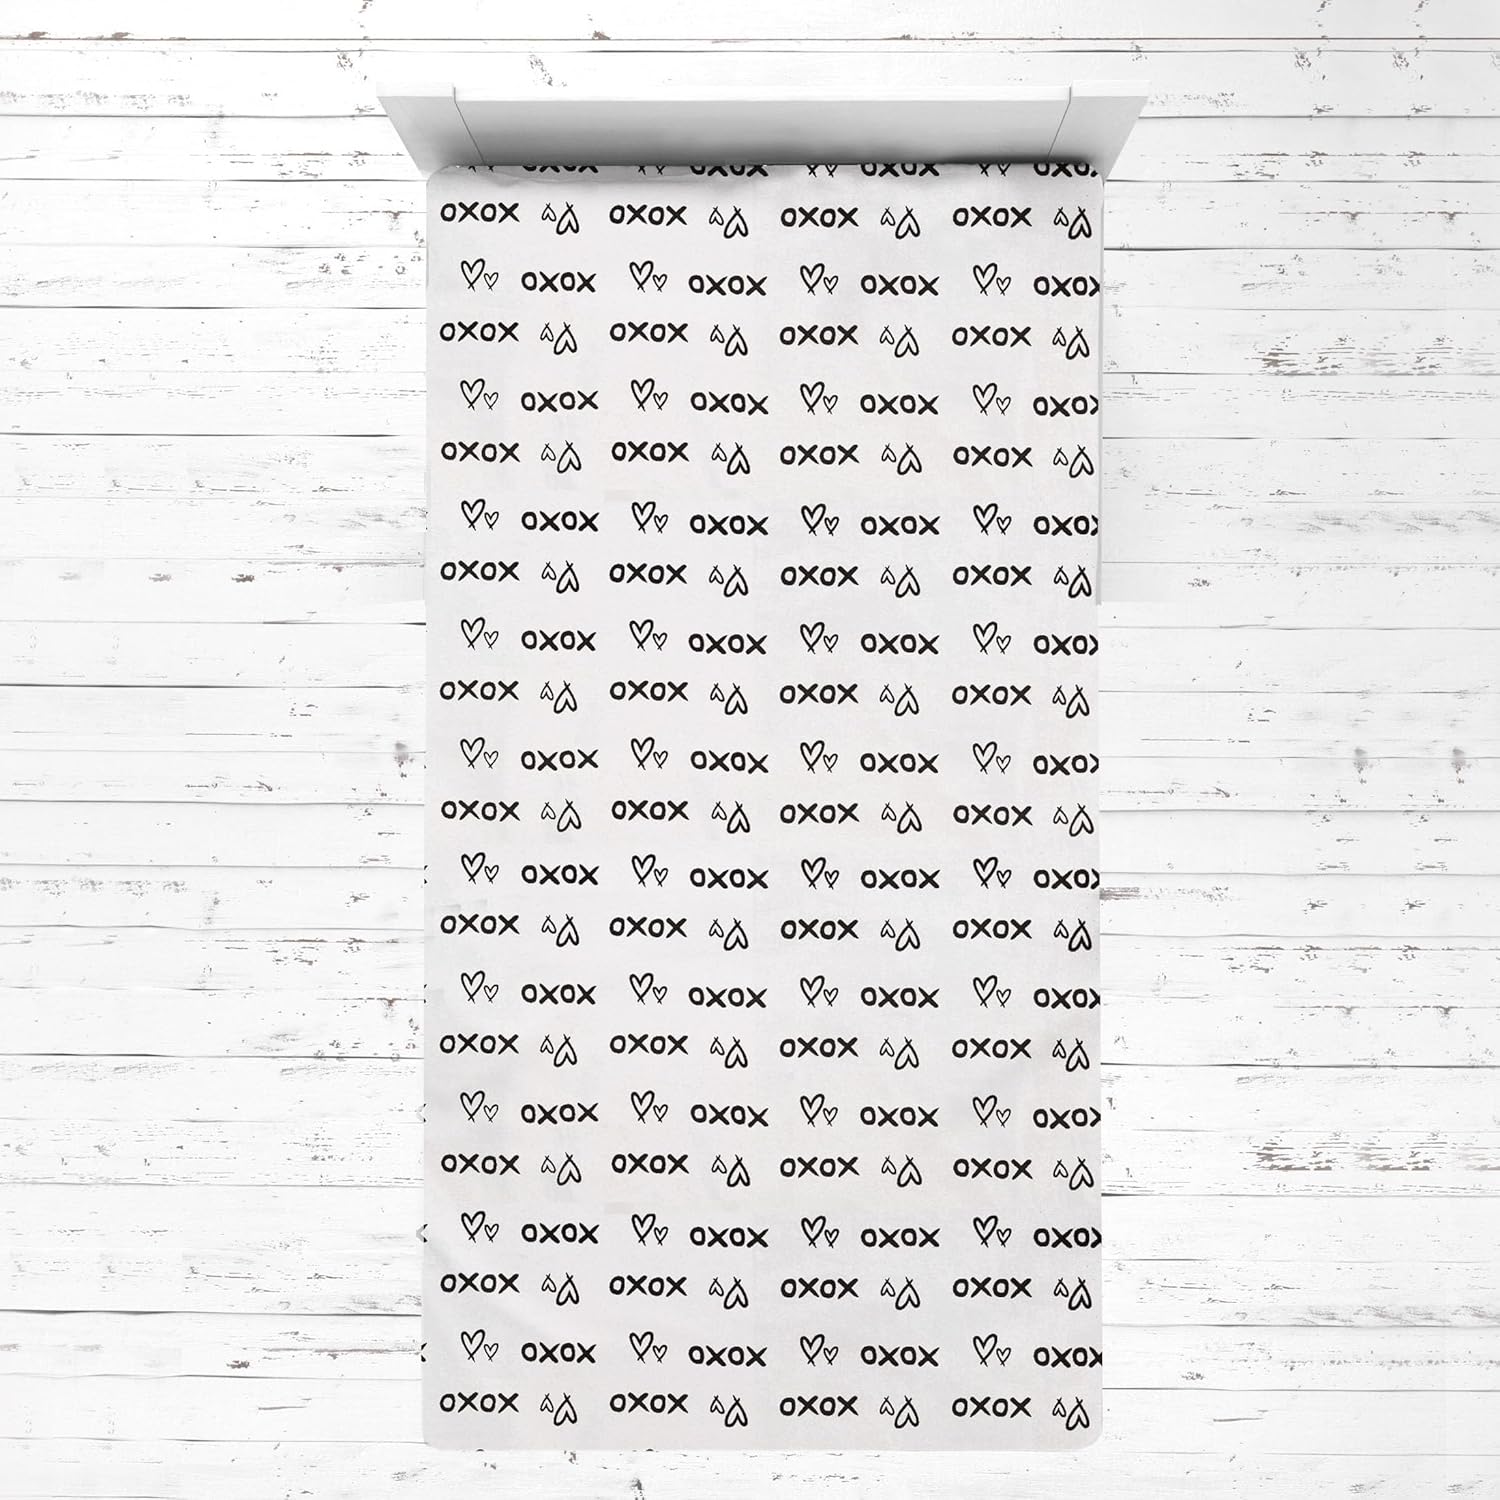 OXOX OXOX OXOX OXOX
OXOX OXOX OXOX OXOX
OXOX OXOX OXOX OXOX
OXOX OXOX OXOX OXOX
OXOX OXOX OXOX OXOX
OXOX OXOX OXOX OXOX
OXOX OXOX OXOX OXOX
OXOX OXOX OXOX OXOX
OXOX OXOX OXOX OXOX
OXOX OXOX OXOX OXOX
OXOX OXOX OXOX OXOX
OXOX OXOX OXOX OXOX
OXOX OXOX OXOX OXOX
OXOX OXOX OXOX OXOX
OXOX OXOX OXOX OXOX
OXOX OXOX OXOX OXOX
OXOX OXOX OXOX OXOX
OXOX OXOX OXOX OXOX
OXOX OXOX OXOX OXOX
OXOX OXOX OXOX OXOX
OXOX OXOX OXOX OXOX
OXOX OXOX OXOX OXOX